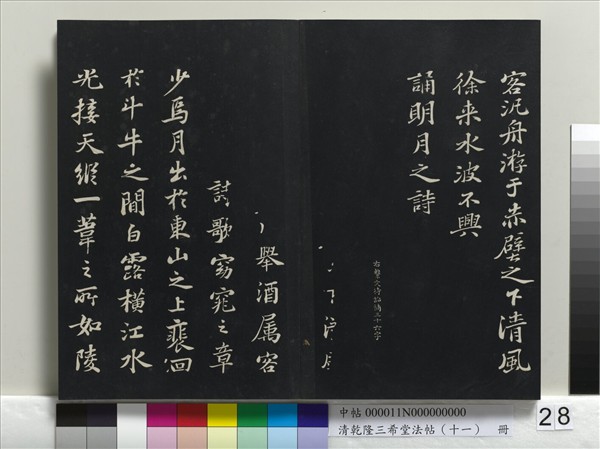 客汎舟游于赤壁之下清風
徐来水波不興
誦明月之詩
舉酒属客
歌窈窕之章
少焉月出於東山之上裵洄
於斗牛之間白露橫江水
光接天縱一葦之所如陵
中帖 000011N000000000
清乾隆三希堂法帖（十一） 冊
28